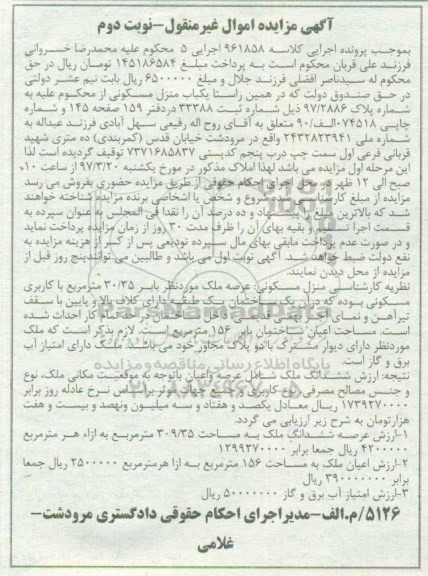 آگهی مزایده اموال غیرمنقول-نوبت دوم
بموجب پرونده اجرایی کلاسه ۹۶۱۸۵۸ اجرایی ۵ محکوم علیه محمدرضا خسروانی
فرزند علی قربان محکوم است به پرداخت مبلغ ۱۴۵۱۸۶۵۸۴ تومان ریال در حق
محکوم له سیدناصر افضلی فرزند جلال و مبلغ ۶۵۰۰۰۰۰ ریال بابت نیم عشر دولتی
در حق صندوق دولت که در همین راستا یکباب منزل مسکونی از محکوم علیه به
شماره پلاک ۹۷/۲۸۸۶ ذیل شماره ثبت ۳۳۳۸۸ دردفتر ۱۵۹ صفحه ۱۴۵ و شماره
چاپی ۰۷۴۵۱۸-الف/۹۰ متعلق به آقای روح اله رفیعی سهل آبادی فرزند عبداله به
شماره ملی ۲۴۳۲۸۲۳۹۴۱ واقع در مرودشت خیابان قدس (کمربندی) ده متری شهید
قربانی فرعی اول سمت چپ درب پنجم کدپستی ۷۳۷۱۶۸۵۸۳۷ توقیف گردیده است لذا
این مرحله اول مزایده می باشد لهذا املاک مذکور در مورخ یکشنبه ۹۷/۳/۲۰ از ساعت ۱۰
صبح الی ۱۲ ظهر در محل اجرای احکام حقوقی از طریق مزایده حضوری بفروش می رسد
مزایده از مبلغ کارشناسی شروع و شخص یا اشخاصی برنده مزایده شناخته خواهند
شد که بالاترین مبلغ را پیشنهاد و ده درصد آن را نقدا فی المجلس به عنوان سپرده به
قسمت اجرا تسلیم و بقیه بهای آن را ظرف مدت ۳۰ روز از زمان مزایده پرداخت نماید
و در صورت عدم پرداخت مابقی بهای مال سپرده تودیعی پس از کسر هزینه مزایده به
نفع دولت ضبط خواهد شد. آگهی نوبت اول می باشد و طالبین می توانندپنج روز قبل از
مزایده از محل دیدن نمایند.
نظریه کارشناسی منزل مسکونی: عرصه ملک موردنظر بابر ۳۰/۳۵ مترمربع با کاربری
مسکونی بوده که درآن یک ساختمان یک طبقه دارای کلاف بالا و پایین با سقف
تیرآهن و نمای
است. مساحت اعیان ساختمان بابر ۱۵۶ مترمربع است. لازم بذکر است که ملک
موردنظر دارای دیوار مشترک با دو پلاک مجاور خود می باشد. ملک دارای امتیاز آب
برق و گاز است.
نتیجه: ارزش ششدانگ ملک شامل عرصه واعیان باتوجه به موقعیت مکانی ملک، نوع
و جنس مصالح مصرفی نوع کاربری و جمیع جهات موثر براساس نرخ عادله روز برابر
۱۷۳۹۲۷۰۰۰۰ ریال معادل یکصد و هفتاد و سه میلیون ونهصد و بیست و هفت
هزارتومان به شرح زیر ارزیابی می گردد.
۱-ارزش عرصه ششدانگ ملک به مساحت ۳۰۹/۳۵ مترمربع به ازاء هر مترمربع
۴۲۰۰۰۰۰ ریال جمعا برابر ۱۲۹۹۲۷۰۰۰۰
۲-ارزش اعیان ملک به مساحت ۱۵۶ مترمربع به ازا هرمترمربع ۲۵۰۰۰۰۰ ریال جمعا
برابر ۳۹۰۰۰۰۰۰۰ ریال
۳-ارزش امتیاز آب برق و گاز ۵۰۰۰۰۰۰۰ ریال
۵۱۲۶/م.الف-مدیراجرای احکام حقوقی دادگستری مرودشت-
غلامی